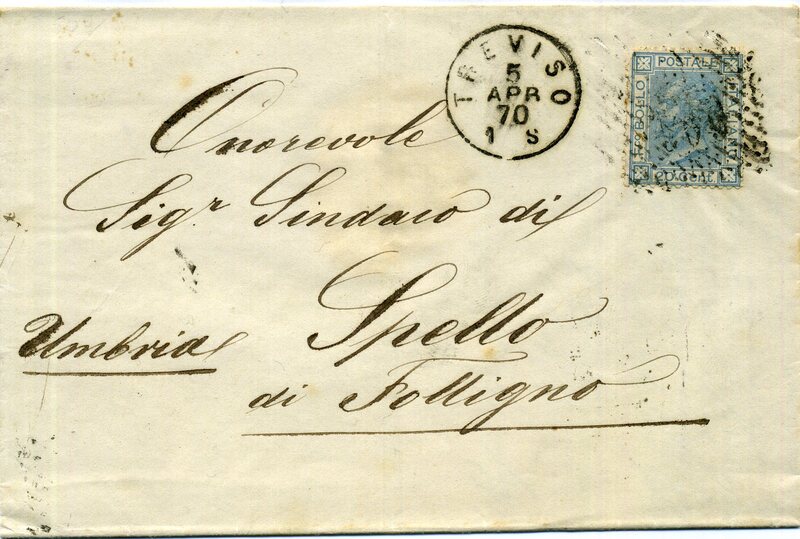 TREVISO
5
APR
70
1 S
POSTALE
BOLLO
ITALIANO
20.CENT
Onorevole
Sigr. Sindaco di
Spello
Umbria
di Folligno